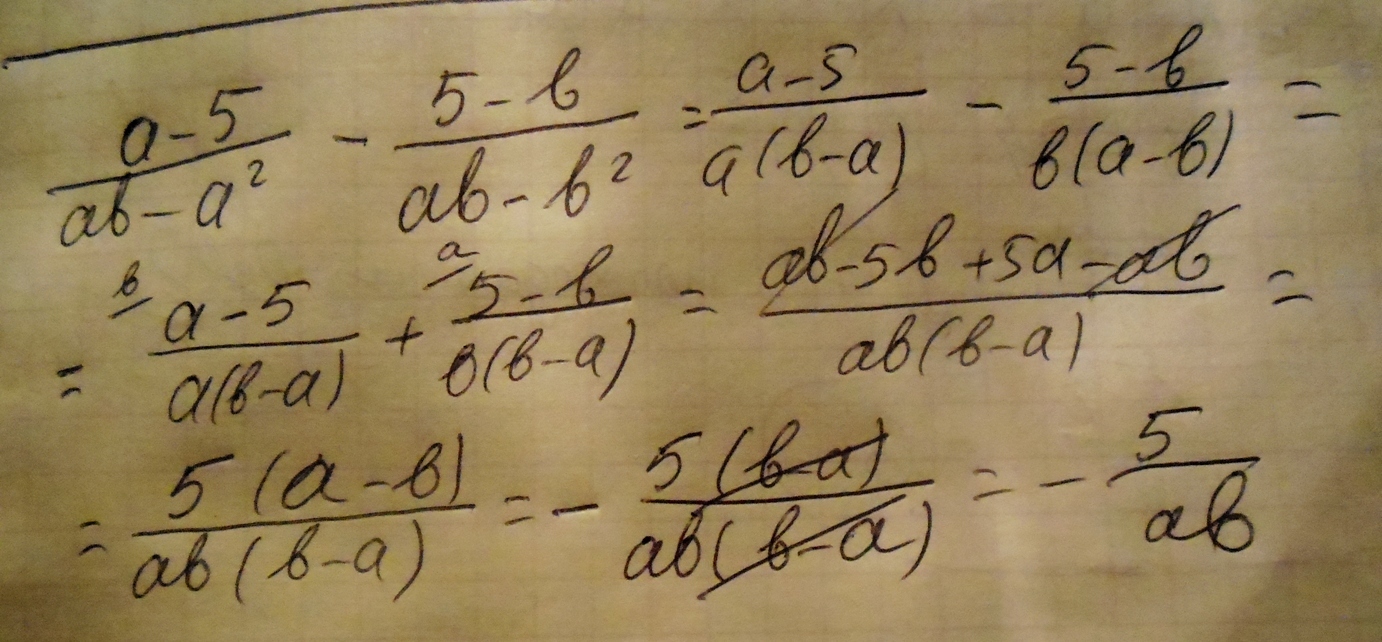 \frac{a-5}{ab-a^2} - \frac{5-b}{ab-b^2} = \frac{a-5}{a(b-a)} - \frac{5-b}{b(a-b)} =
= \frac{a-5}{a(b-a)}^{b} + \frac{5-b}{b(b-a)}^{a} = \frac{ab-5b+5a-ab}{ab(b-a)} =
= \frac{5(a-b)}{ab(b-a)} = - \frac{5(b-a)}{ab(b-a)} = - \frac{5}{ab}